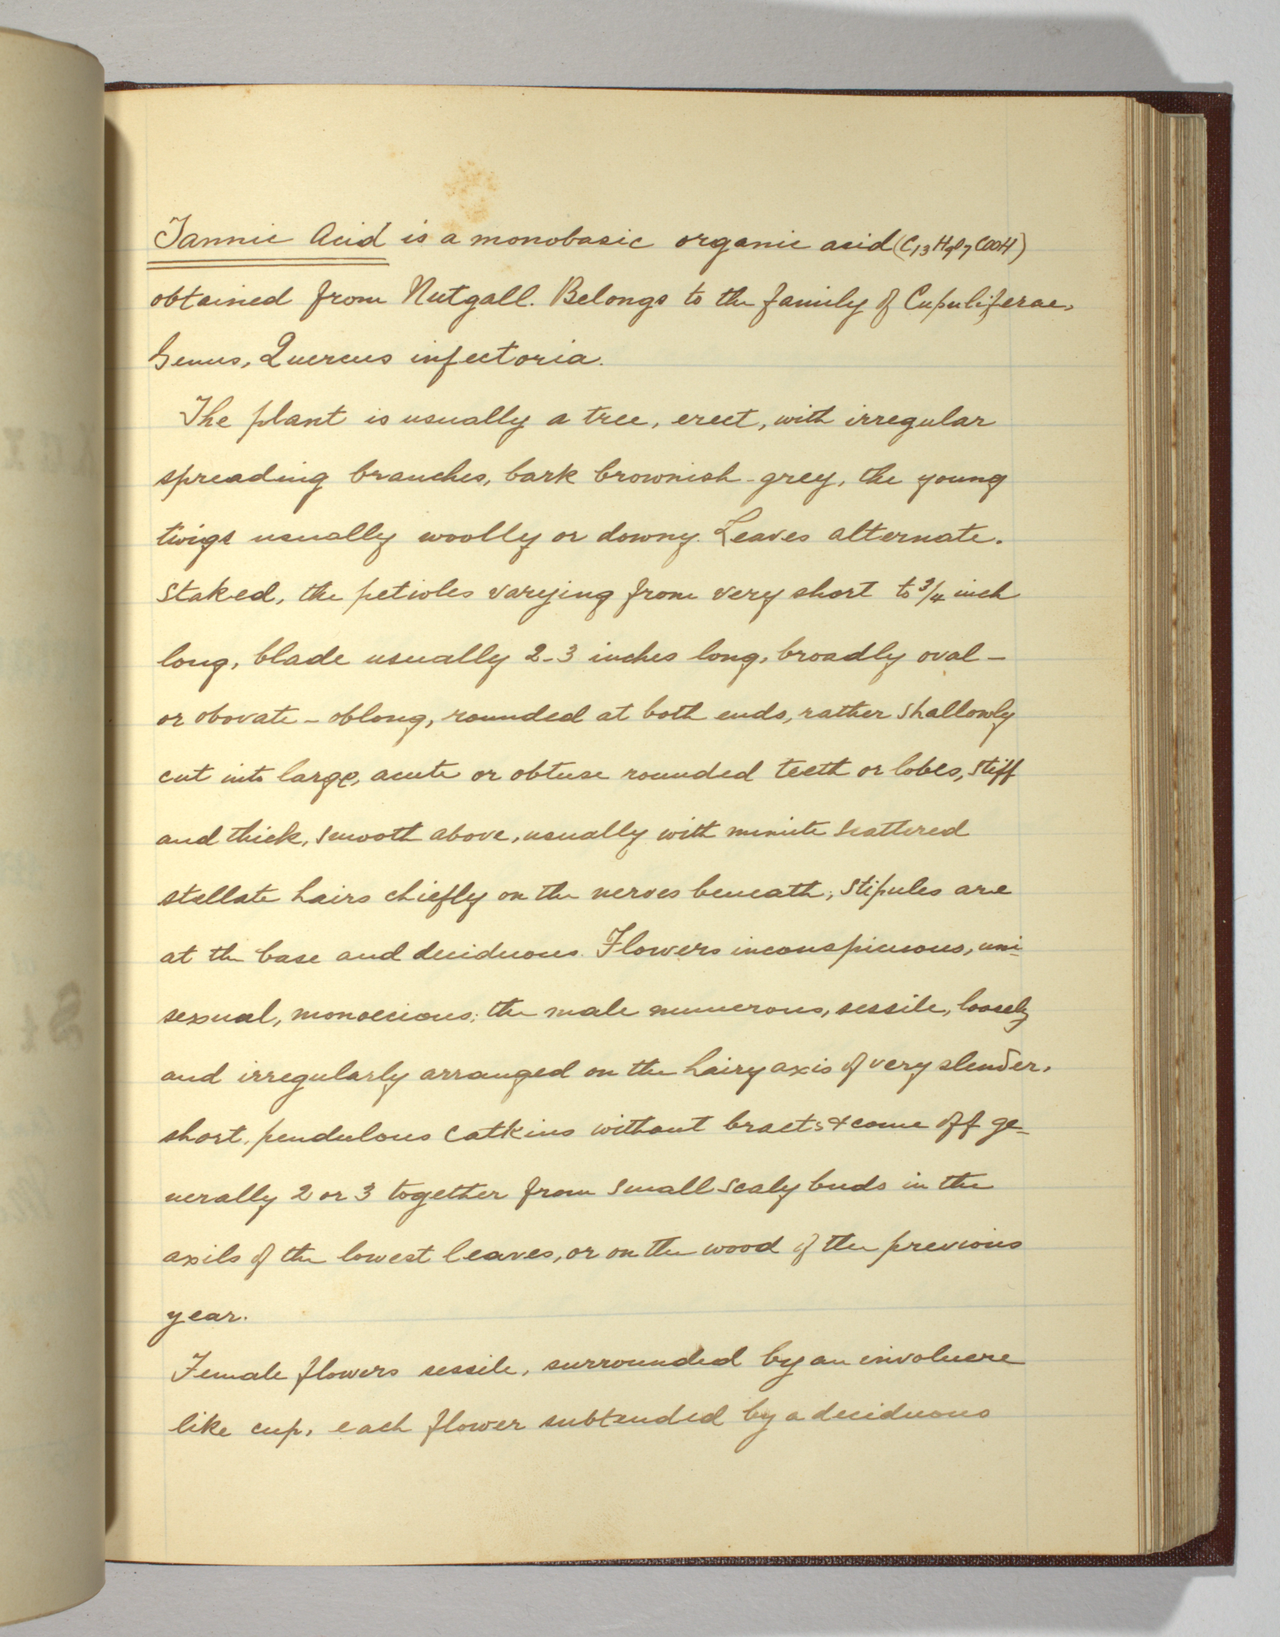 Tannic Acid is a monobasic organic acid (C13H9O7COOH)
obtained from Nutgall. Belongs to the family of Cupuliferae,
Genus, Quercus infectoria.
The plant is usually a tree, erect, with irregular
spreading branches, bark brownish-grey, the young
twigs usually woolly or downy. Leaves alternate.
staked, the petioles varying from very short to 3/4 inch
long, blade usually 2-3 inches long, broadly oval-
or obovate-oblong, rounded at both ends, rather shallowly
cut into large, acute or obtuse rounded teeth or lobes, stiff
and thick, smooth above, usually with minute scattered
stellate hairs chiefly on the nerves beneath; stipules are
at the base and deciduous. Flowers inconspicuous, uni-
sexual, monoecious; the male numerous, sessile, loosely
and irregularly arranged on the hairy axis of very slender,
short, pendulous catkins without bracts & come off ge-
nerally 2 or 3 together from small scaly buds in the
axils of the lowest leaves, or on the wood of the previous
year.
Female flowers sessile, surrounded by an involucre
like cup, each flower subtended by a deciduous